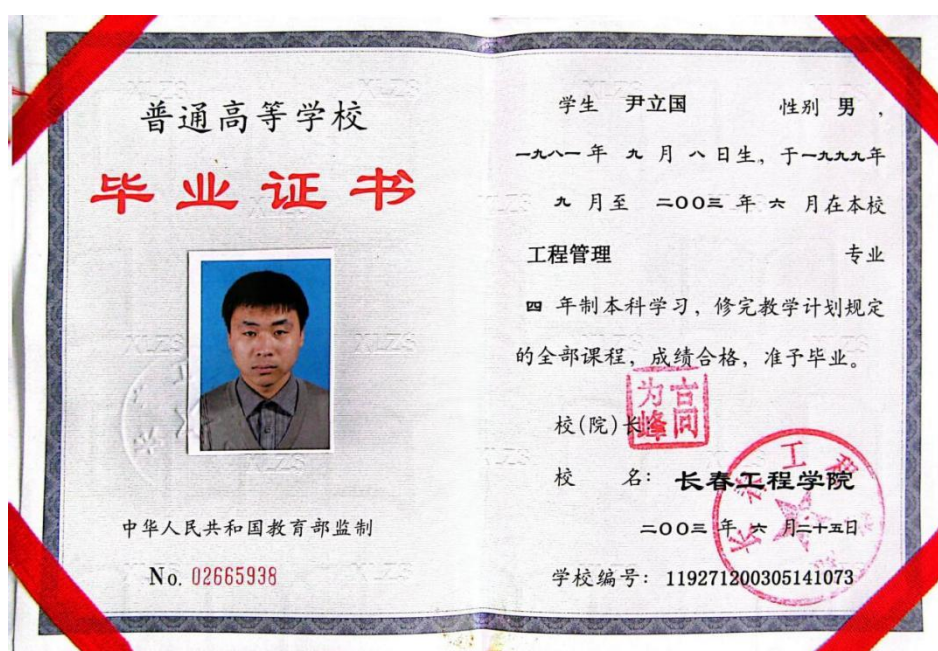 普通高等学校
毕业证书
中华人民共和国教育部监制
No. 02665938
学生 尹立国 性别 男,
一九八一年 九 月 八 日生, 于一九九九年
九 月至 二00三 年 六 月在本校
工程管理 专业
四 年制本科学习, 修完教学计划规定
的全部课程, 成绩合格, 准予毕业。
校(院)长:
校 名: 长春工程学院
二00三 年 六 月二十五日
学校编号: 119271200305141073